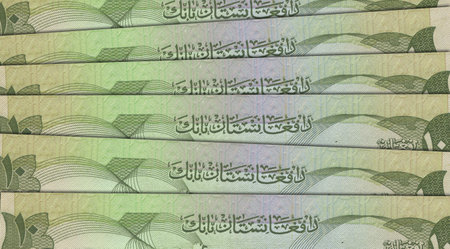 ۱۰ د افغانستان بانك
د افغانستان بانك
د افغانستان بانك
۱۰ د افغانستان بانك
د افغانستان بانك ۱۰
د افغانستان بانك ۱۰